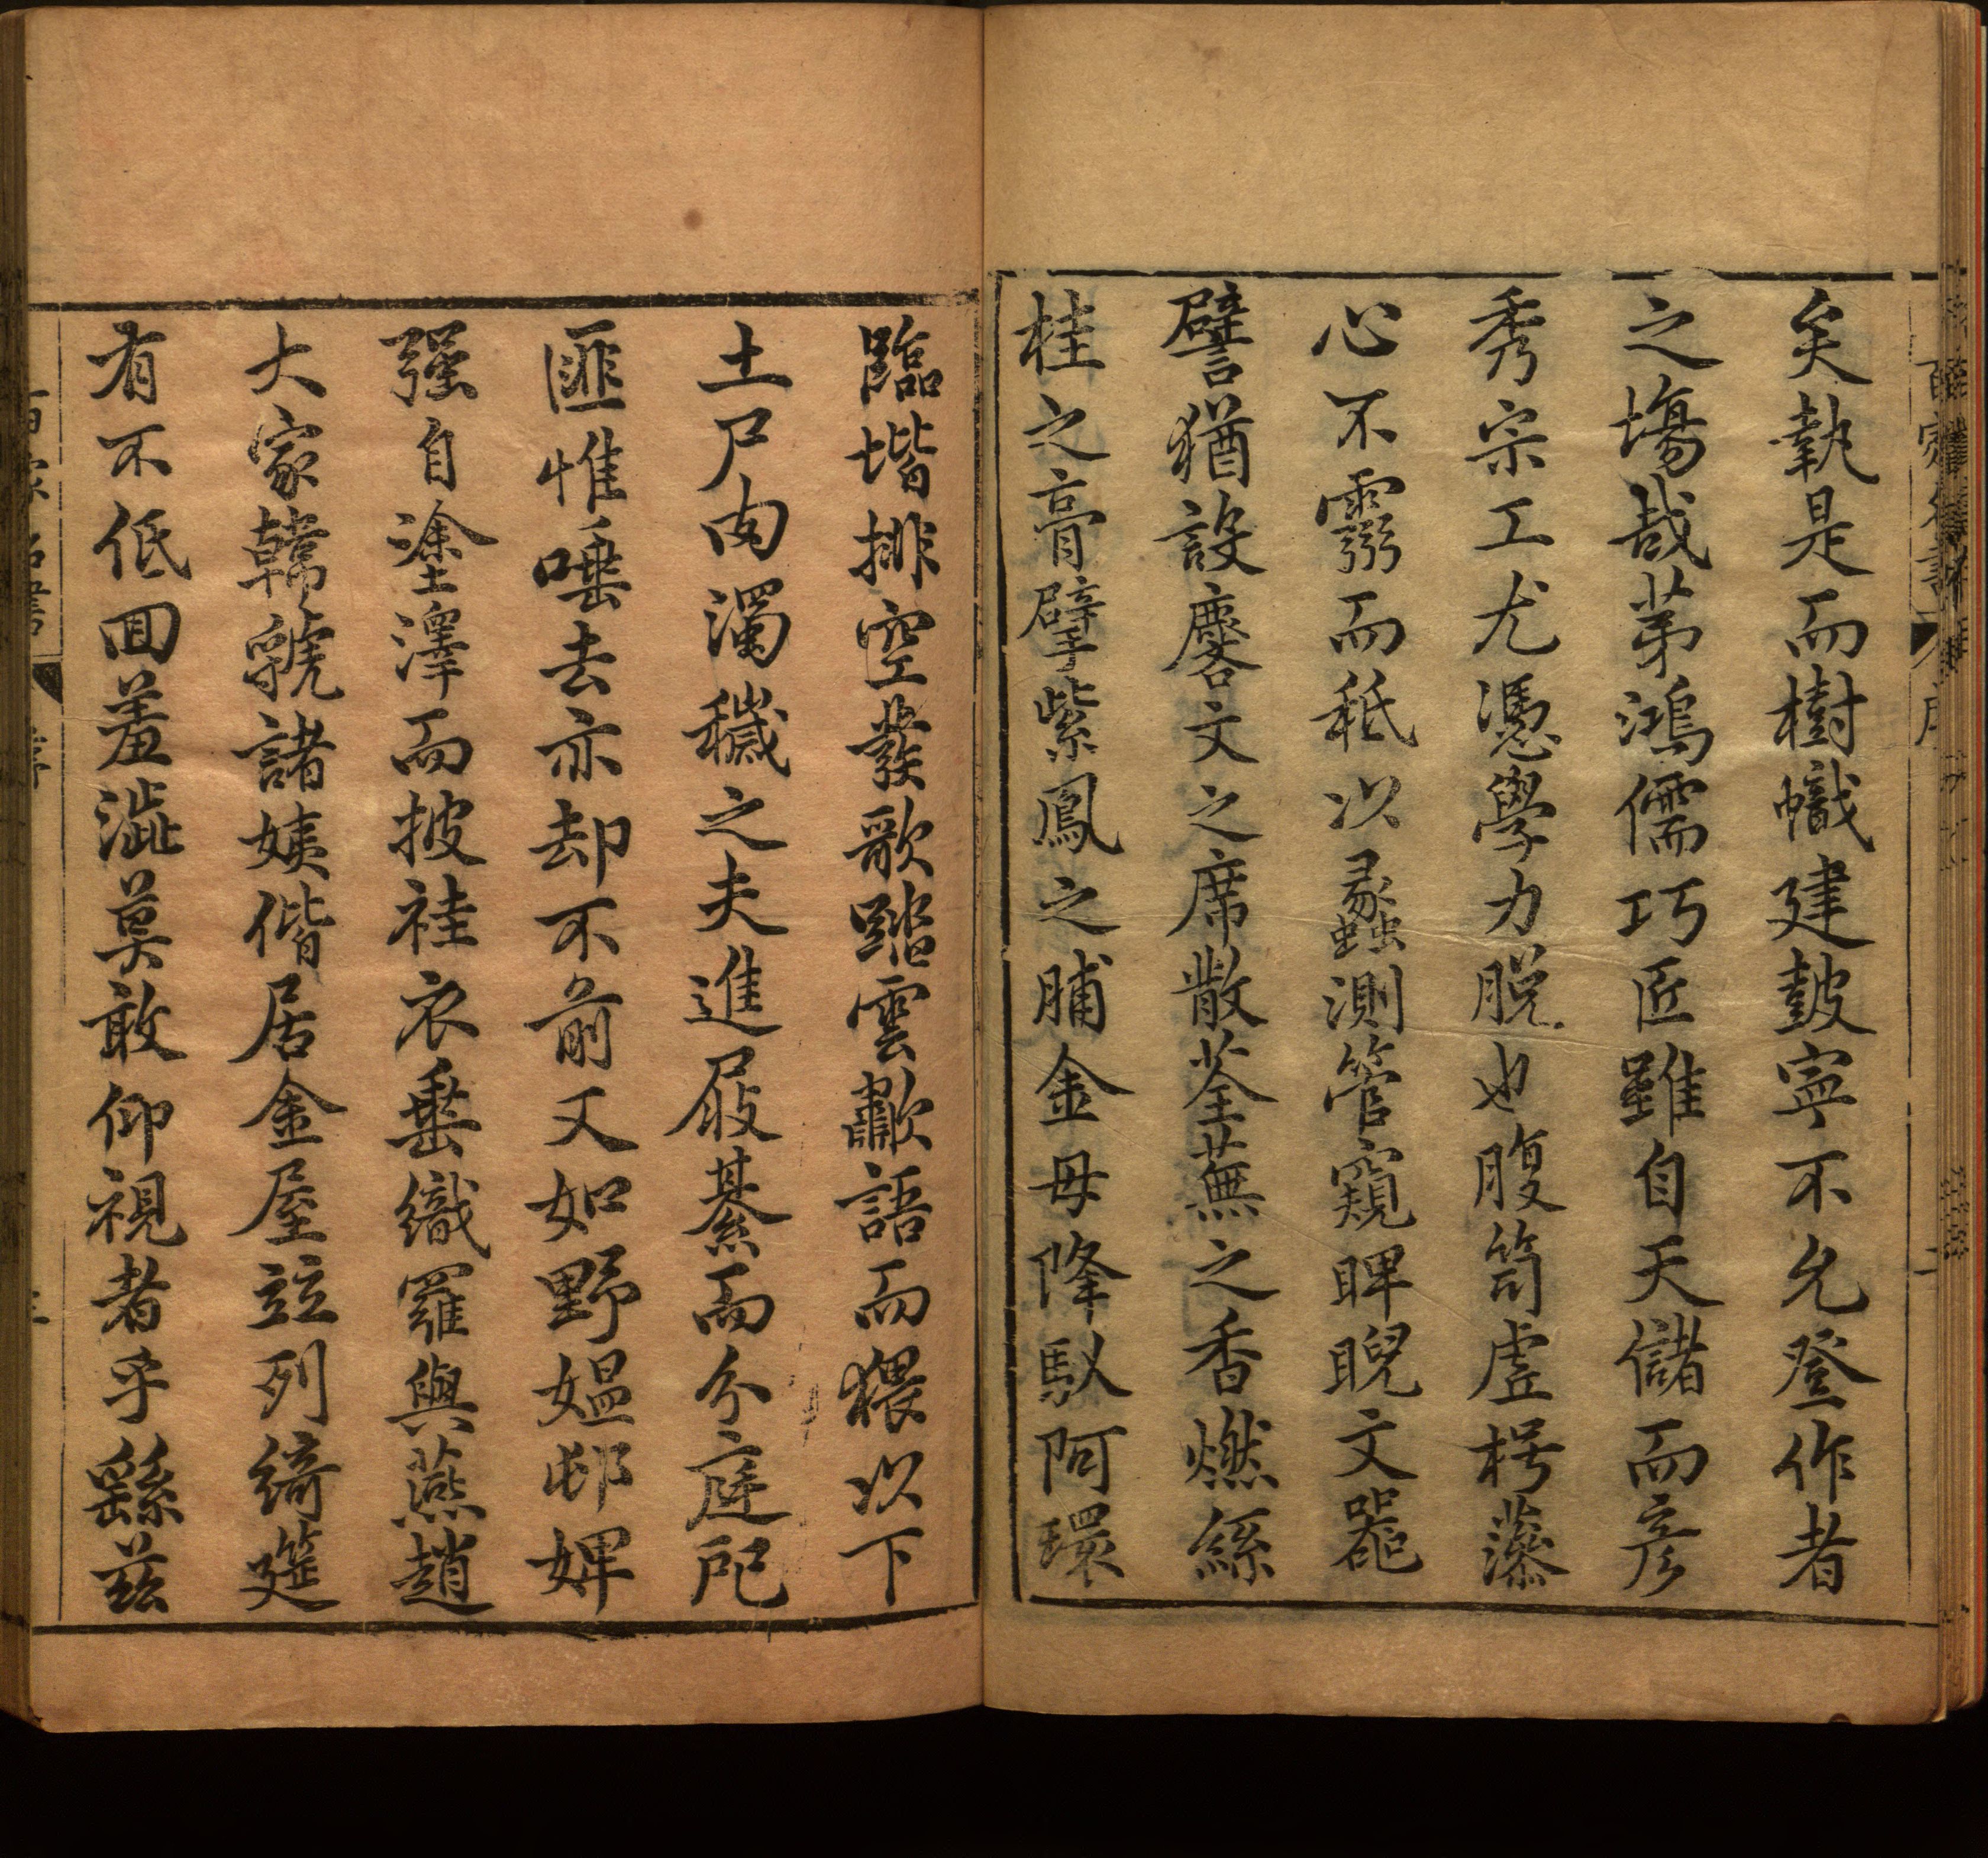 矣執是而樹幟建鼓寧不允登作者
之塲哉苐鴻儒巧匠雖自天儲而彦
秀宗工尤憑學力脱也腹笥虗枵藻
心不靈而秪以蠡測管窺睥睨文囂
譬猶設麐文之席散荃蕪之香燃絲
桂之膏擘紫鳳之脯金母降馭阿環
臨堦排空發歌踏雲歠語而猥以下
土尸肉濁穢之夫進屐綦而分庭阤
匪惟唾去亦却不前又如野媼邨婢
强自塗澤而披袿衣垂織羅與燕趙
大家韓虢諸姨偕居金屋竝列綺筵
有不低回羞澁莫敢仰視者乎繇茲